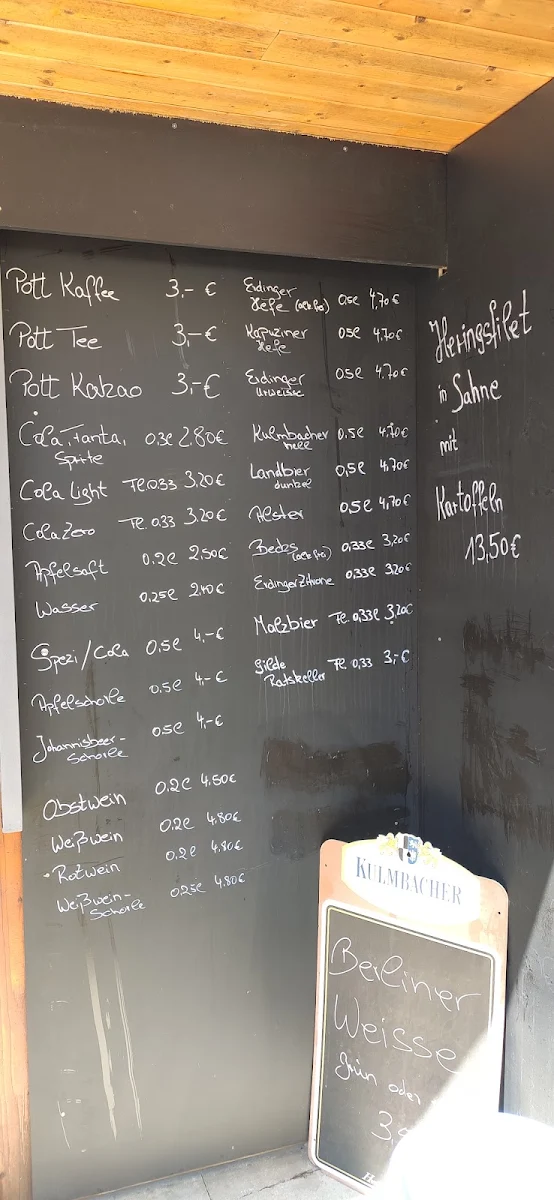 Pott Kaffee 3,- €
Pott Tee 3,- €
Pott Kakao 3,- €
Cola, Fanta, 0,3l 2.80€
Sprite
Cola Light Fl. 0.33 3,20€
Cola Zero Fl. 0.33 3.20€
Apfelsaft 0.2l 2,50€
Wasser 0,25l 2,40€
Spezi/Cola 0,5l 4,-€
Apfelschorle 0,5l 4,-€
Johannisbeer- 0,5l 4,-€
Schorle
Obstwein 0.2l 4,50€
Weißwein 0.2l 4.80€
Rotwein 0.2l 4.80€
Weißwein- 0,25l 4.80€
Schorle
Erdinger
Hefe (alk.frei) 0,5l 4,70€
Kapuziner 0,5l 4.70€
Hefe
Erdinger 0,5l 4.70€
Urweisse
Kulmbacher 0.5l 4.70€
hell
Landbier 0,5l 4,70€
dunkel
Alster 0,5l 4,70€
Becks (alk.frei) 0,33l 3,20€
Erdinger Zitrone 0,33l 3,20€
Malzbier Fl. 0,33l 3,20€
Gilde Fl. 0,33 3,-€
Ratskeller
Heringsfilet
in Sahne
mit
Kartoffeln
13,50€
KULMBACHER
Berliner
Weisse
Grün oder